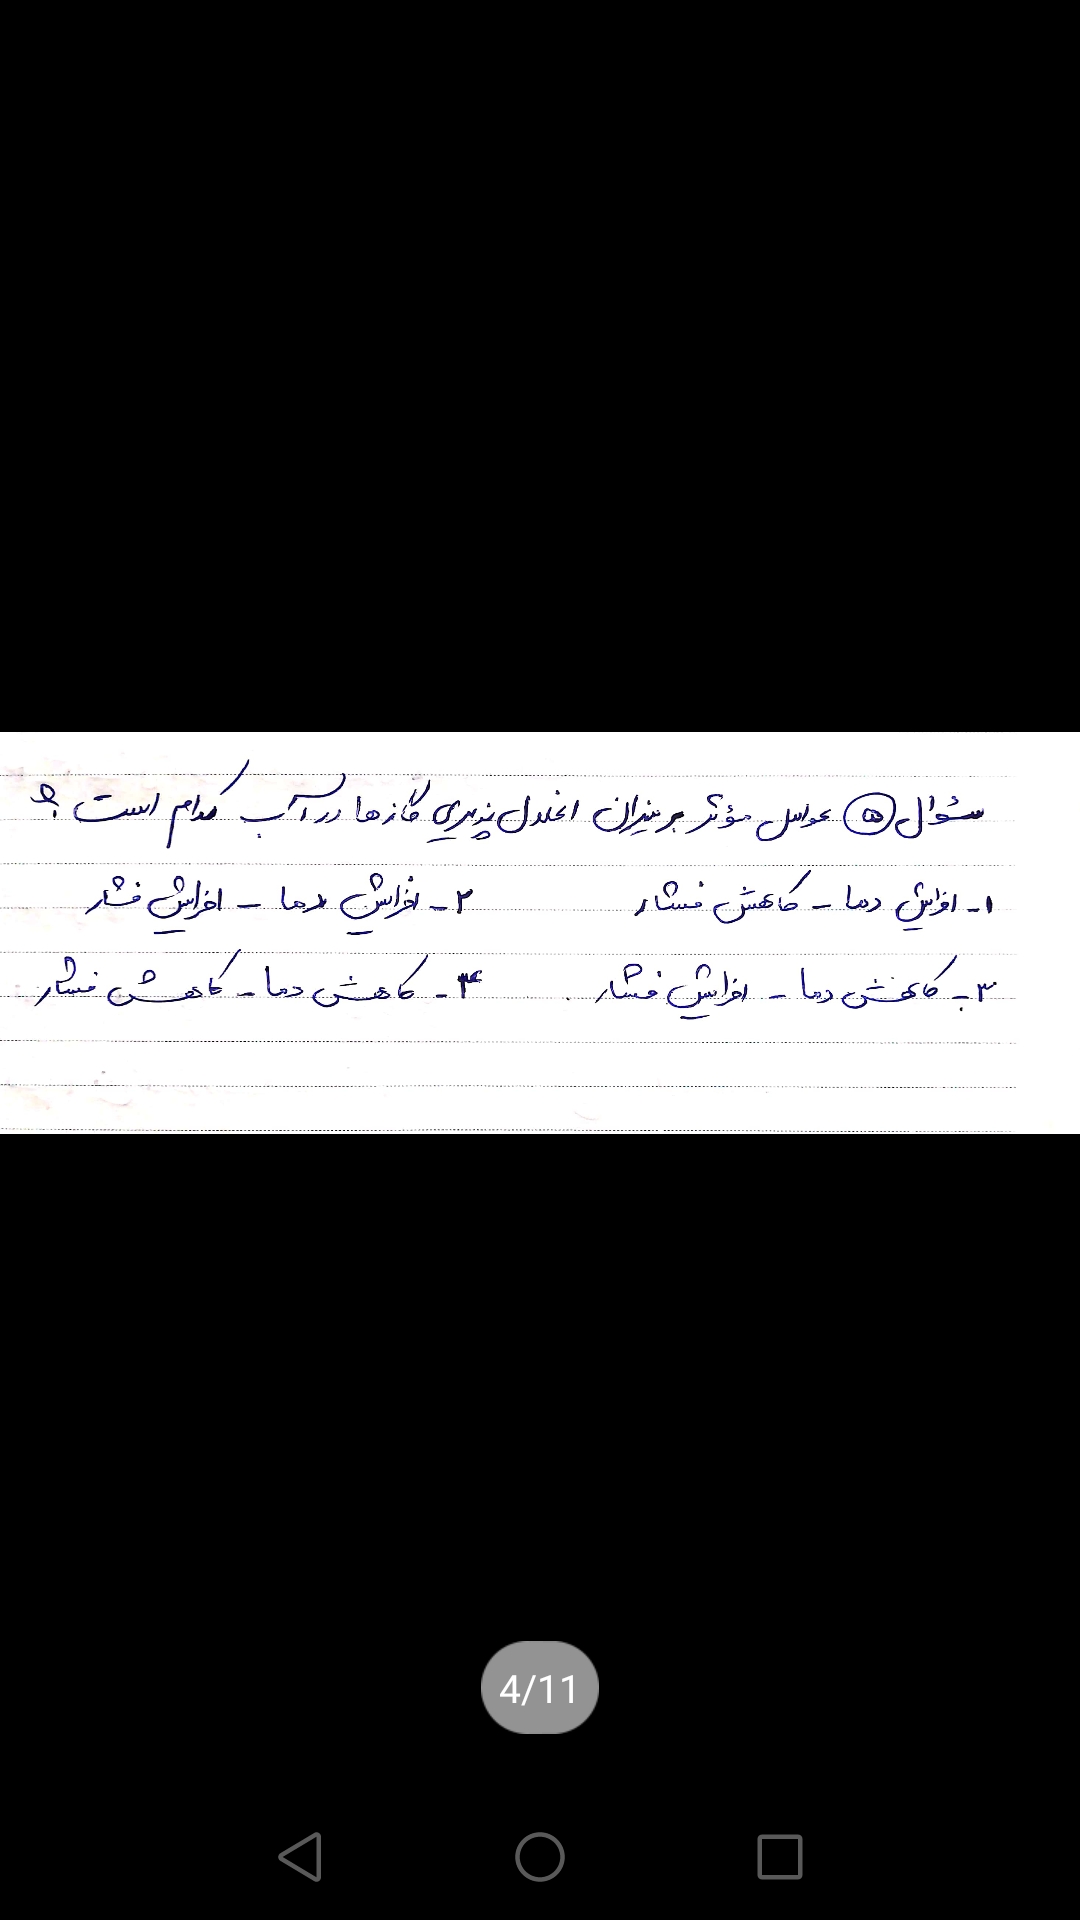 سؤال ۵ عوامل مؤثر بر میزان انحلال پذیری گازها در آب کدام است؟
۱- افزایش دما - کاهش فشار ۲- افزایش دما - افزایش فشار
۳- کاهش دما - افزایش فشار ۴- کاهش دما - کاهش فشار
4/11